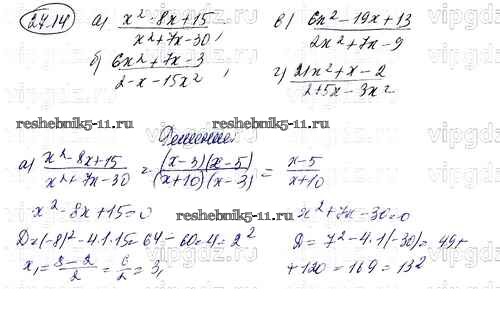 27.14 а) x²-8x+15 / x²+7x-30, в) 6x²-19x+13 / 2x²+7x-9
б) 6x²+7x-3 / 2-x-15x², г) 21x²+x-2 / 2+5x-3x²
reshebnik5-11.ru reshebnik5-11.ru
Решение
а) x²-8x+15 / x²+7x-30 = (x-3)(x-5) / (x+10)(x-3) = x-5 / x+10
x²-8x+15=0 x²+7x-30=0
reshebnik5-11.ru
D=(-8)²-4·1·15=64-60=4=2² D=7²-4·1(-30)=49+
x₁=8-2 / 2=6 / 2=3, +120=169=13²